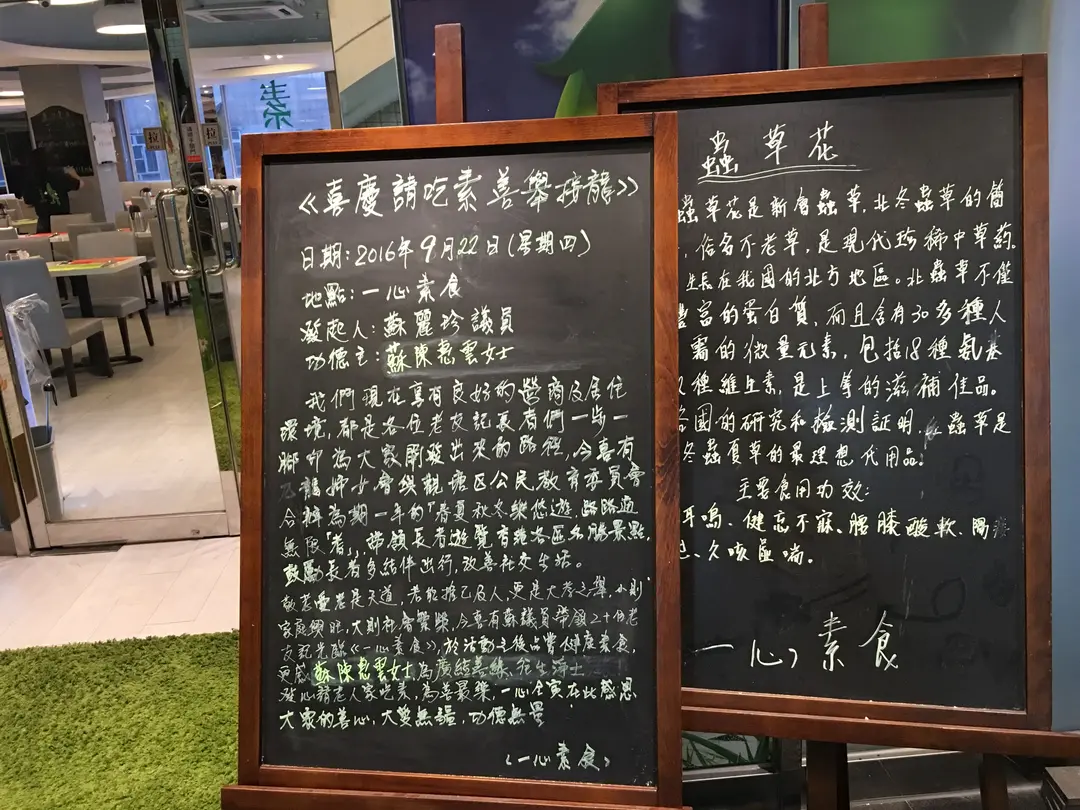 素
拉
拉
《喜慶請吃素善舉接龍》
日期:2016年9月22日(星期四)
地點:一心素食
發起人:蘇麗珍議員
功德主:蘇陳惠雲女士
我們現在享有良好的營商及居住
環境,都是各位老友記長者們一步一
腳印為大家開發出來的路程,今喜有
九龍婦女會與觀塘區公民教育委員會
合辦為期一年的「春夏秋冬樂悠遊,路路通
無限「耆」」,帶領長者遊覽香港各區名勝景點,
鼓勵長者多結伴出行,改善社交生活。
敬老愛老是天道,老能捨己為人,更是大孝之舉,小則
家庭興旺,大則社會繁榮,今喜有蘇議員帶領二十位老
友記光臨《一心素食》,於活動之後品嘗健康素食,
更感蘇陳惠雲女士為廣結善緣、花生淨土
發心請老人家吃素,為善最樂,一心仝寅在此感恩
大家的善心,大愛無疆,功德無量
《一心素食》
蟲草花
蟲草花是新層蟲草,北冬蟲草的簡
,俗名不老草,是現代珍稀中草葯。
生長在我國的北方地區。北蟲草不僅
豐富的蛋白質,而且含有30多種人
需的微量元素,包括18種氨基
種維生素,是上等的滋補佳品。
各國的研究和檢測証明,北蟲草是
冬蟲夏草的最理想代用品。
主要食用功效:
耳鳴、健忘不寐、腰膝酸軟、陽
、久咳虛喘。
一心素食